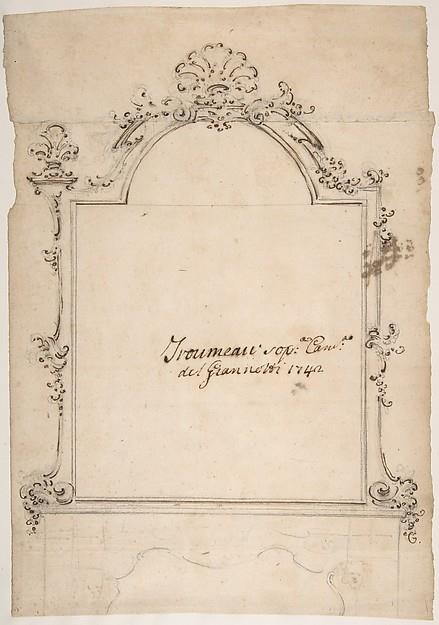 Troumeau sop:ᵃ Cam:ᵃ
del Giannotti 1742